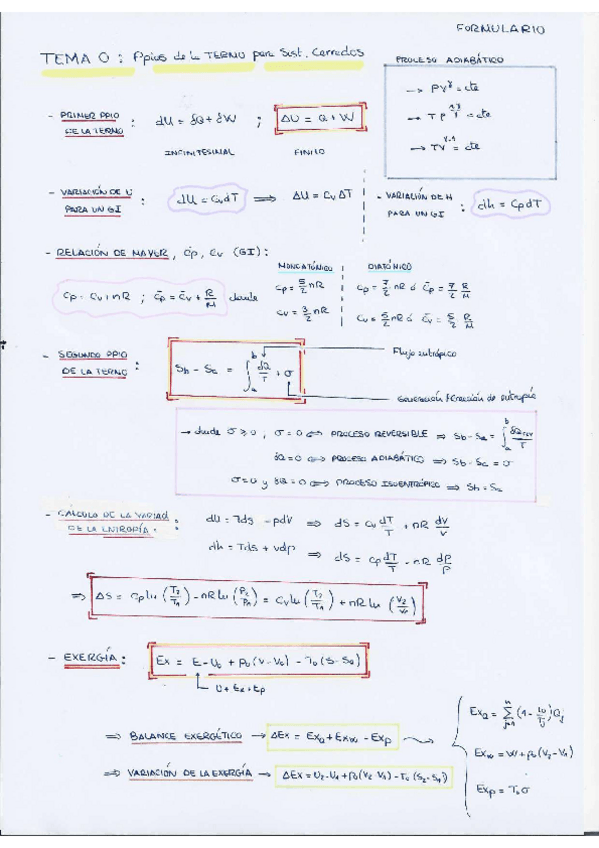 FORMULARIO
TEMA 0: Ppios de la TERMO para Sist. Cerrados
PROCESO ADIABÁTICO
→ PV^γ = cte
→ TP^((1-γ)/γ) = cte
→ TV^(γ-1) = cte
- PRIMER PPIO DE LA TERMO : dU = δQ + δW ; ΔU = Q + W
INFINITESIMAL FINITO
- VARIACIÓN DE U PARA UN GI : dU = CvdT ⟹ ΔU = Cv ΔT
- VARIACIÓN DE H PARA UN GI : dh = CpdT
- RELACIÓN DE MAYER, Cp, Cv (GI):
MONOATÓMICO DIATÓMICO
Cp = Cv + nR ; C̄p = C̄v + R/M donde
Cp = 5/2 nR Cp = 7/2 nR ó C̄p = 7/2 R/M
Cv = 3/2 nR Cv = 5/2 nR ó C̄v = 5/2 R/M
- SEGUNDO PPIO DE LA TERMO : Sb - Sa = ∫_a^b δQ/T + σ
Flujo entrópico
generación / creación de entropía
→ donde σ ≥ 0 , σ = 0 ⟺ PROCESO REVERSIBLE ⟹ Sb - Sa = ∫_a^b δQrev/T
δQ = 0 ⟺ PROCESO ADIABÁTICO ⟹ Sb - Sa = σ
σ = 0 y δQ = 0 ⟺ PROCESO ISOENTRÓPICO ⟹ Sb = Sa
- CÁLCULO DE LA VARIAC DE LA ENTROPÍA : dU = Tds - pdV ⟹ dS = Cv dT/T + nR dV/V
dh = Tds + vdp ⟹ dS = Cp dT/T - nR dp/p
⟹ ΔS = Cp ln (T2/T1) - nR ln (P2/P1) = Cv ln (T2/T1) + nR ln (V2/V1)
- EXERGÍA : Ex = E - U0 + p0 (V - V0) - T0 (S - S0)
U + Ec + Ep
⟹ BALANCE EXERGÉTICO → ΔEx = ExQ + ExW - ExD
⟹ VARIACIÓN DE LA EXERGÍA → ΔEx = U2 - U1 + p0 (V2 - V1) - T0 (S2 - S1)
ExQ = Σ_(j=1)^n (1 - T0/Tj) Qj
ExW = W + p0 (V2 - V1)
ExD = T0 σ